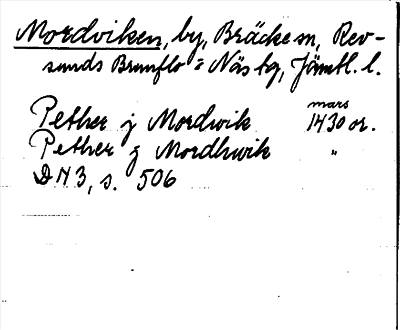 Mordviken, by, Bräcke sn, Rev-
sunds Brunflo o Näs tg, Jämtl. l.
mars
Pether j Mordwik 1430 or.
Pether j Mordhwik "
DN 3, s. 506